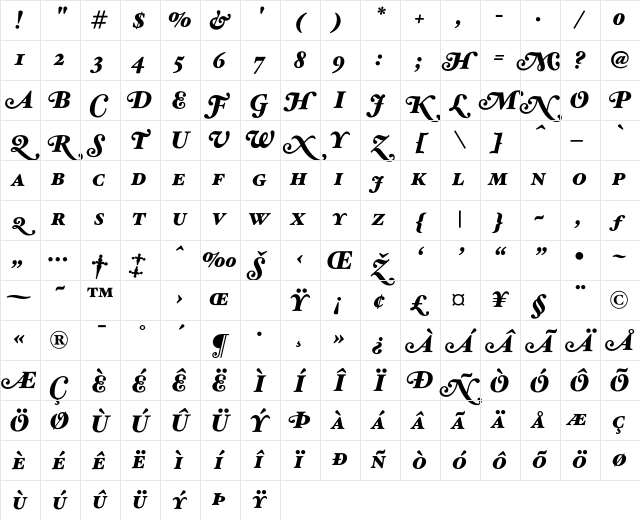 ! " # $ % & ' ( ) * + , - . / 0
1 2 3 4 5 6 7 8 9 : ; H = M ? @
A B C D E F G H I J K L M N O P
Q R S T U V W X Y Z [ \ ] ^ – `
A B C D E F G H I J K L M N O P
Q R S T U V W X Y Z { | } ~ , ƒ
„ … † ‡ ˆ ‰ Š ‹ Œ Ž ‘ ’ “ ” • ~
— ˜ ™ › Œ Ÿ ¡ ¢ £ ¤ ¥ § ¨ ©
« ® ¯ ° ´ ¶ · ¸ » ¿ À Á Â Ã Ä Å
Æ Ç È É Ê Ë Ì Í Î Ï Ð Ñ Ò Ó Ô Õ
Ö Ø Ù Ú Û Ü Ý Þ À Á Â Ã Ä Å Æ Ç
È É Ê Ë Ì Í Î Ï Ð Ñ Ò Ó Ô Õ Ö Ø
Ù Ú Û Ü Ý Þ Ÿ